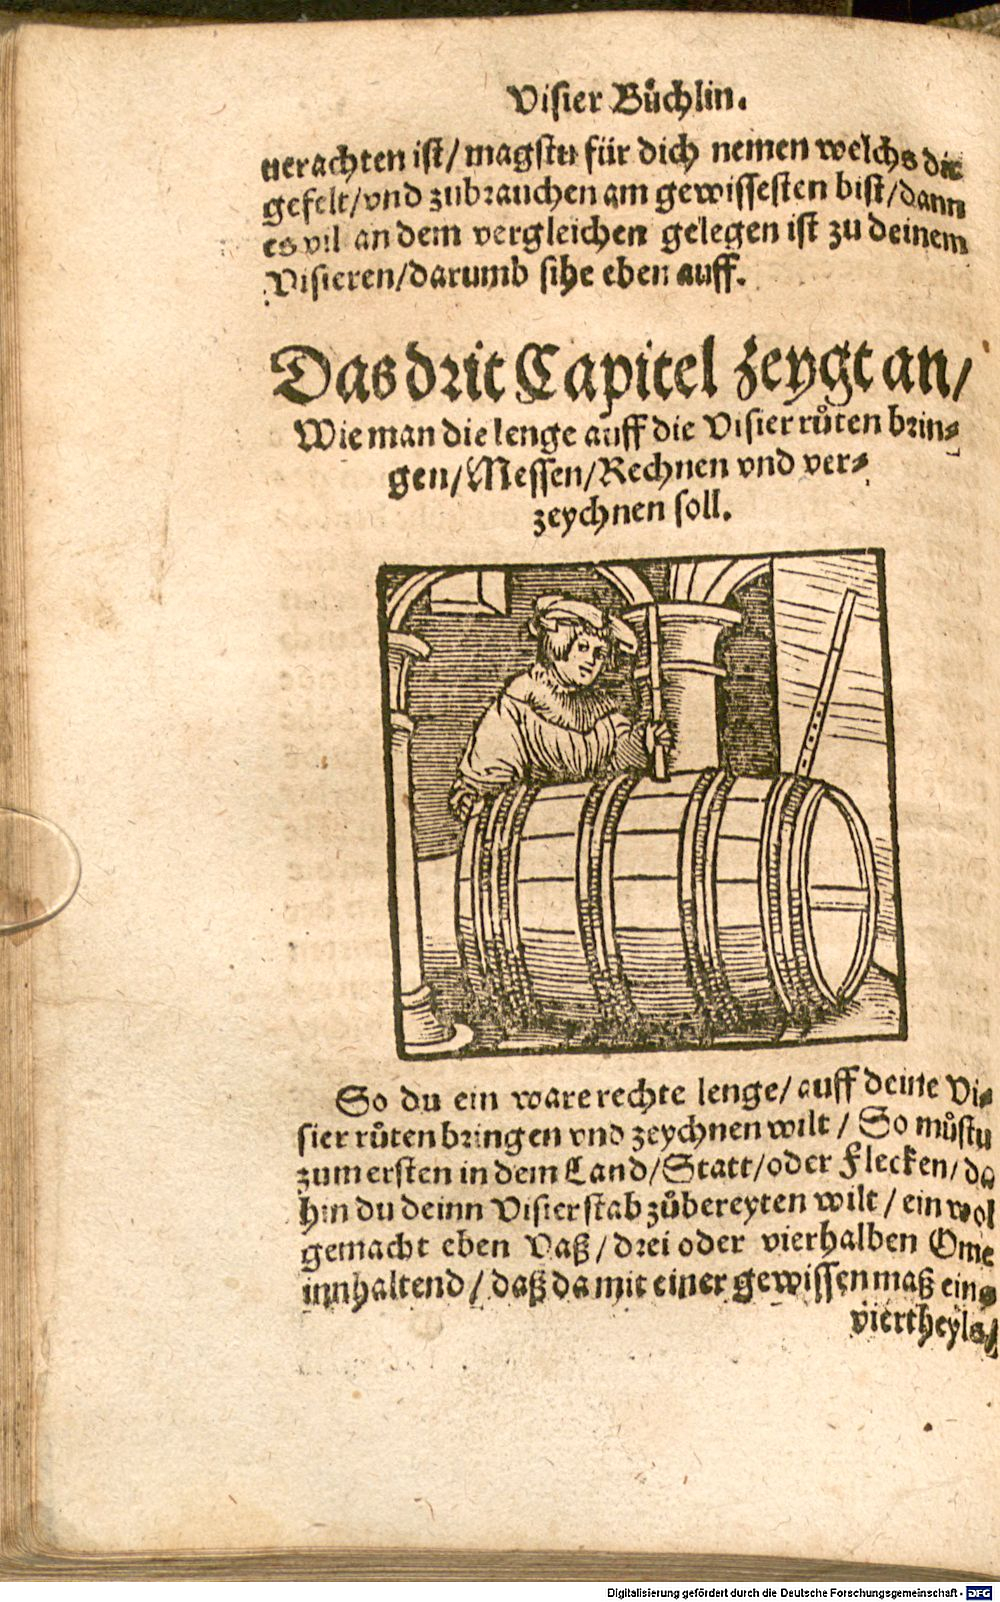 Visier Bůchlin.
uerachten ist/ magstu für dich nemen welchs dir
gefelt/vnd zubrauchen am gewissesten bist/dann
es vil an dem vergleichen gelegen ist zu deinem
Visieren/darumb sihe eben auff.
Das drit Capitel zeygt an/
Wie man die lenge auff die Visier růten brin⸗
gen/Messen/Rechnen vnd ver⸗
zeychnen soll.
So du ein ware rechte lenge/ auff deine Vi⸗
sier růten bringen vnd zeychnen wilt / So můstu
zum ersten in dem Land/Statt/oder Flecken/ da
hin du deinn Visierstab zůbereyten wilt / ein wol
gemacht eben Vaß / drei oder vierhalben Ome
innhaltend / daß da mit einer gewissen maß eins
viertheyls/
Digitalisierung gefördert durch die Deutsche Forschungsgemeinschaft - DFG